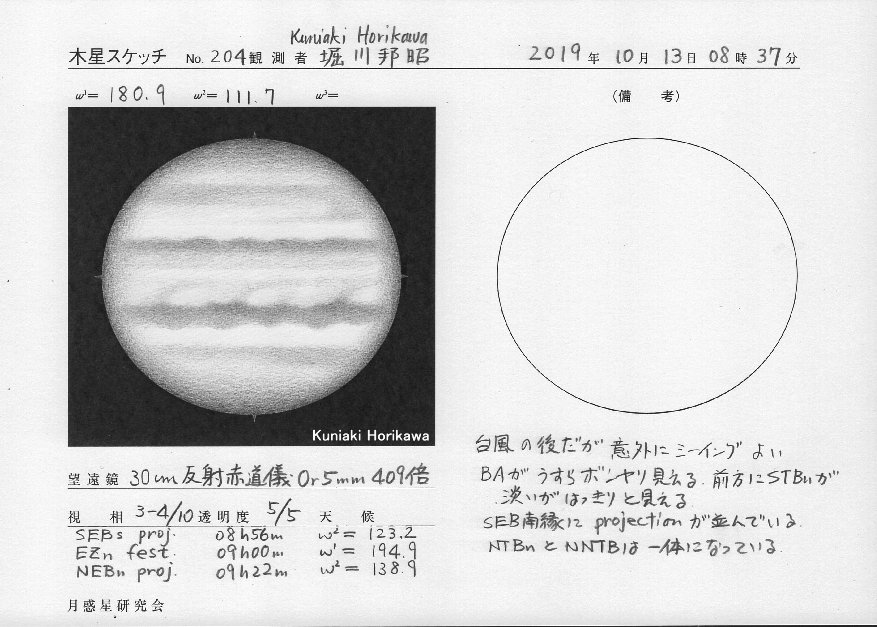 Kuniaki Horikawa
木星スケッチ No. 204 観測者 堀川邦昭 2019年 10月 13日 08時 37分
ω¹= 180.9 ω²= 111.7 ω³=
(備 考)
Kuniaki Horikawa
台風の後だが意外にシーイングよい
BAがうすらボンヤリ見える. 前方にSTBnが
淡いがはっきりと見える
SEB南縁に projection が並んでいる.
NTBnとNNTBは一体になっている.
望遠鏡 30cm反射赤道儀 Or5mm 409倍
視 相 3-4/10 透明度 5/5 天 候
SEBs proj. 08h56m ω²= 123.2
EZn fest. 09h00m ω¹= 194.9
NEBn proj. 09h22m ω²= 138.9
月惑星研究会